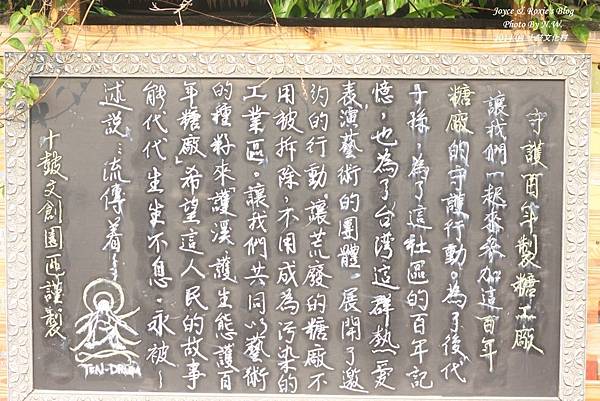 Joyce & Roxie's Blog
Photo By N.W.
守護百年製糖工廠
讓我們一起來參加這百年
糖廠的守護行動。為了後代
子孫,為了這社區的百年記
憶,也為了台灣這群熱愛
表演藝術的團體。展開了邀
約的行動讓荒廢的糖廠不
用被拆除,不用成為污染的
工業區。讓我們共同以藝術
的種籽來「護溪護生態護百
年糖廠」希望這人民的故事
能代代生生不息。永被~
述說…流傳着~~
十鼓文創園區謹製
TEN-DRUM